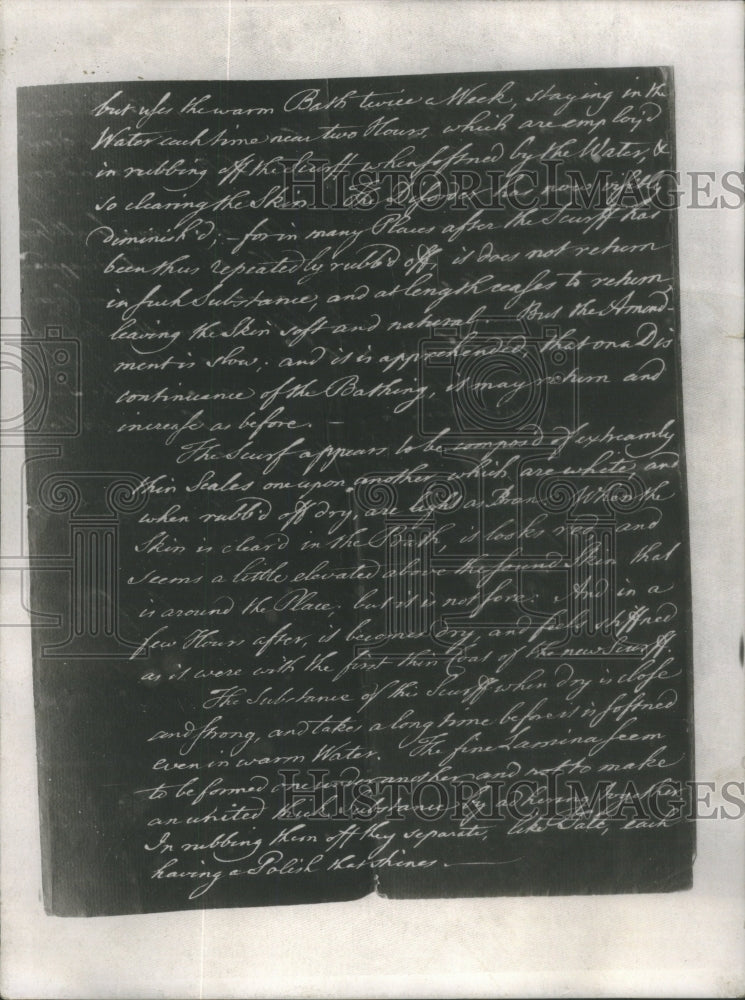 but uses the warm Bath twice a Week, staying in the
Water each time near two Hours, which are employ'd
in rubbing off the Scurff when softned by the Water, &
so clearing the Skin. The Disorder has now visibly
diminish'd; — for in many Places after the Scurff has
been thus repeatedly rubb'd off, it does not return
in such Substance, and at length ceases to return,
leaving the Skin soft and natural. But the Amend
ment is slow; and it is apprehended, that on a Dis
continuance of the Bathing, it may return and
increase as before. —
The Scurf appears to be compos'd of extreamly
thin Scales one upon another, which are white, and
when rubb'd off dry, are light as Bran. When the
Skin is clear'd in the Bath, it looks red, and
seems a little elevated above the sound Skin that
is around the Place, but it is not sore: And in a
few Hours after, it becomes dry, and feels stiffned
as it were with the first thin Coat of the new Scurff.
The Substance of this Scurff when dry is close
and strong, and takes a long time before it is softned
even in warm Water. The fine Lamina seem
to be formed one under another, and not to make
an united thick Substance by adhering together
In rubbing them off they separate, like Talc, each
having a Polish that shines. —
HISTORIC IMAGES
HISTORIC IMAGES